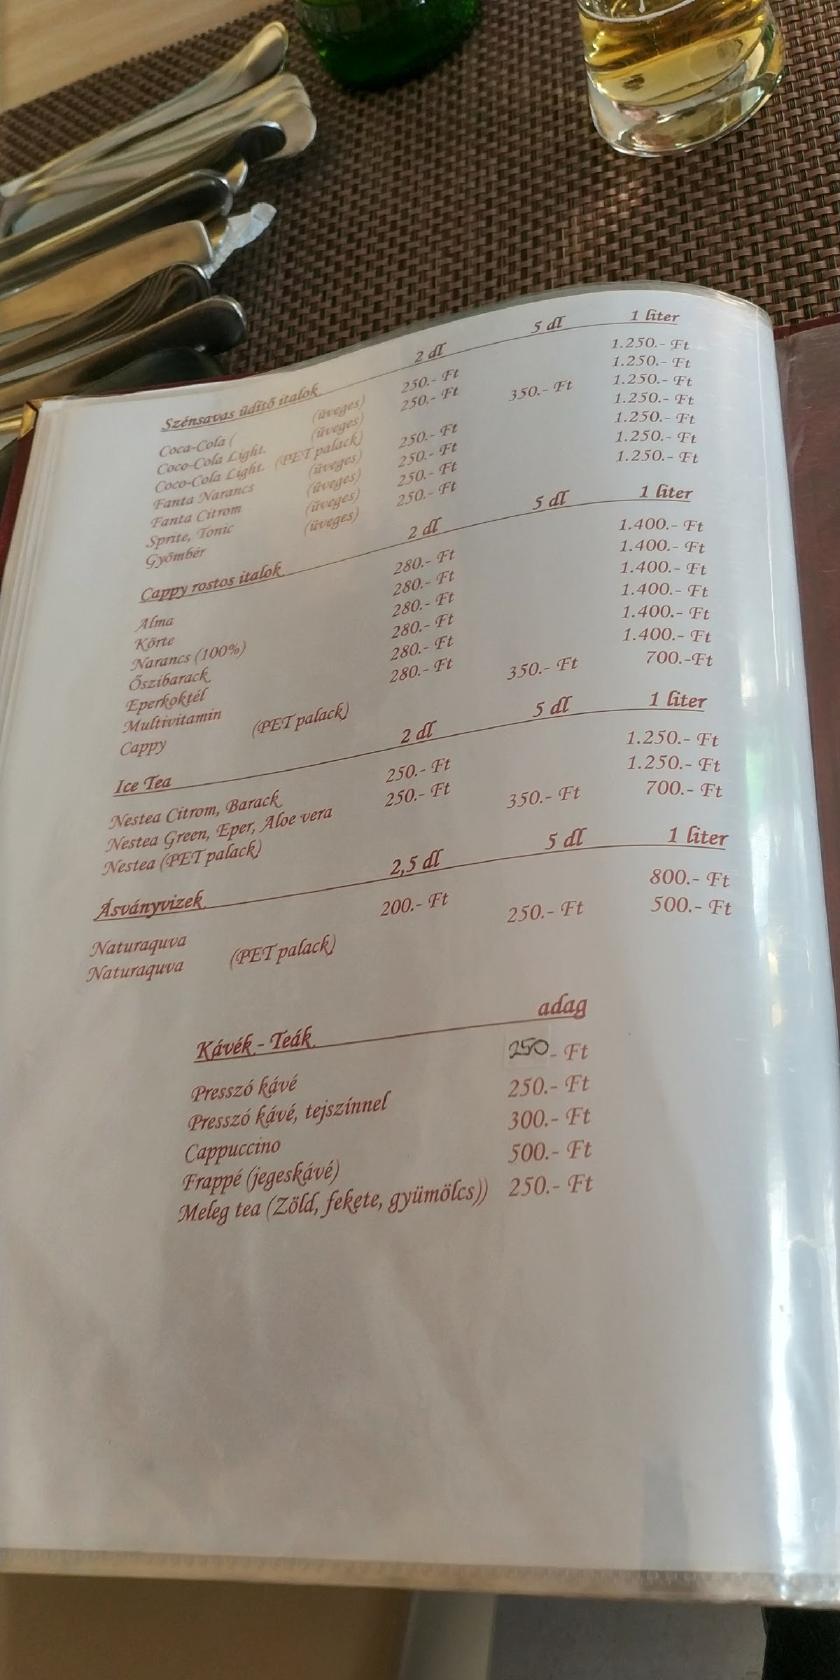 Szénsavas üdítő italok 2 dl 5 dl 1 liter
Coca-Cola ( (üveges) 250.- Ft 1.250.- Ft
Coco-Cola Light. (üveges) 250.- Ft 1.250.- Ft
Coco-Cola Light. (PET palack) 350.- Ft 1.250.- Ft
Fanta Narancs (üveges) 250.- Ft 1.250.- Ft
Fanta Citrom (üveges) 250.- Ft 1.250.- Ft
Sprite, Tonic (üveges) 250.- Ft 1.250.- Ft
Gyömbér (üveges) 250.- Ft 1.250.- Ft
Cappy rostos italok 2 dl 5 dl 1 liter
Alma 280.- Ft 1.400.- Ft
Körte 280.- Ft 1.400.- Ft
Narancs (100%) 280.- Ft 1.400.- Ft
Őszibarack 280.- Ft 1.400.- Ft
Eperkoktél 280.- Ft 1.400.- Ft
Multivitamin 280.- Ft 1.400.- Ft
Cappy (PET palack) 350.- Ft 700.-Ft
Ice Tea 2 dl 5 dl 1 liter
Nestea Citrom, Barack 250.- Ft 1.250.- Ft
Nestea Green, Eper, Aloe vera 250.- Ft 1.250.- Ft
Nestea (PET palack) 350.- Ft 700.- Ft
Ásványvizek 2,5 dl 5 dl 1 liter
Naturaquva 200.- Ft 800.- Ft
Naturaquva (PET palack) 250.- Ft 500.- Ft
Kávék - Teák adag
Presszó kávé 250.- Ft
Presszó kávé, tejszínnel 250.- Ft
Cappuccino 300.- Ft
Frappé (jegeskávé) 500.- Ft
Meleg tea (Zöld, fekete, gyümölcs)) 250.- Ft